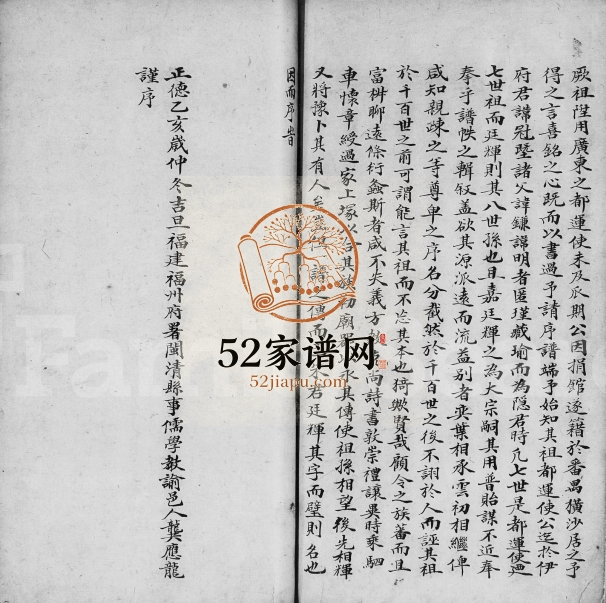 厥祖陞用廣東之都運使未及爪期公因捐館遂籍於番禺橫沙居之予
得之言喜銘之心既而以書過予請序譜端予始知其祖都運使公迄於伊
府君諱冠暨諸父諱鎌諱明者匿瑾藏瑜而為隱君時凡七世是都運使廼
七世祖而廷輝則其八世孫也目嘉廷輝之為大宗嗣其用普貽謀不近奉
奉乎譜帙之輯叙盖欲其源派遠而流益別者奕葉相承雲初相繼俾
咸知親疎之等尊卑之序名分截然於千百世之後不詡於人而誣其祖
於千百世之前可謂能言其祖而不忘其本也猗歟賢哉顧令之族蕃而且
富椒聊遠條衍螽斯者咸不失義方 尚詩書敦崇禮讓異時乘駟
車懷章綬過家上塚以 其族初廟 承其傳使祖孫相望後先相輝
又將豫卜其有人 譜 傳而 來君廷輝其字而璧則名也
因而序皆
正德乙亥歲仲冬吉旦福建福州府署閩清縣事儒學教諭邑人龔應龍
謹序
52家谱网
52jiapu.com